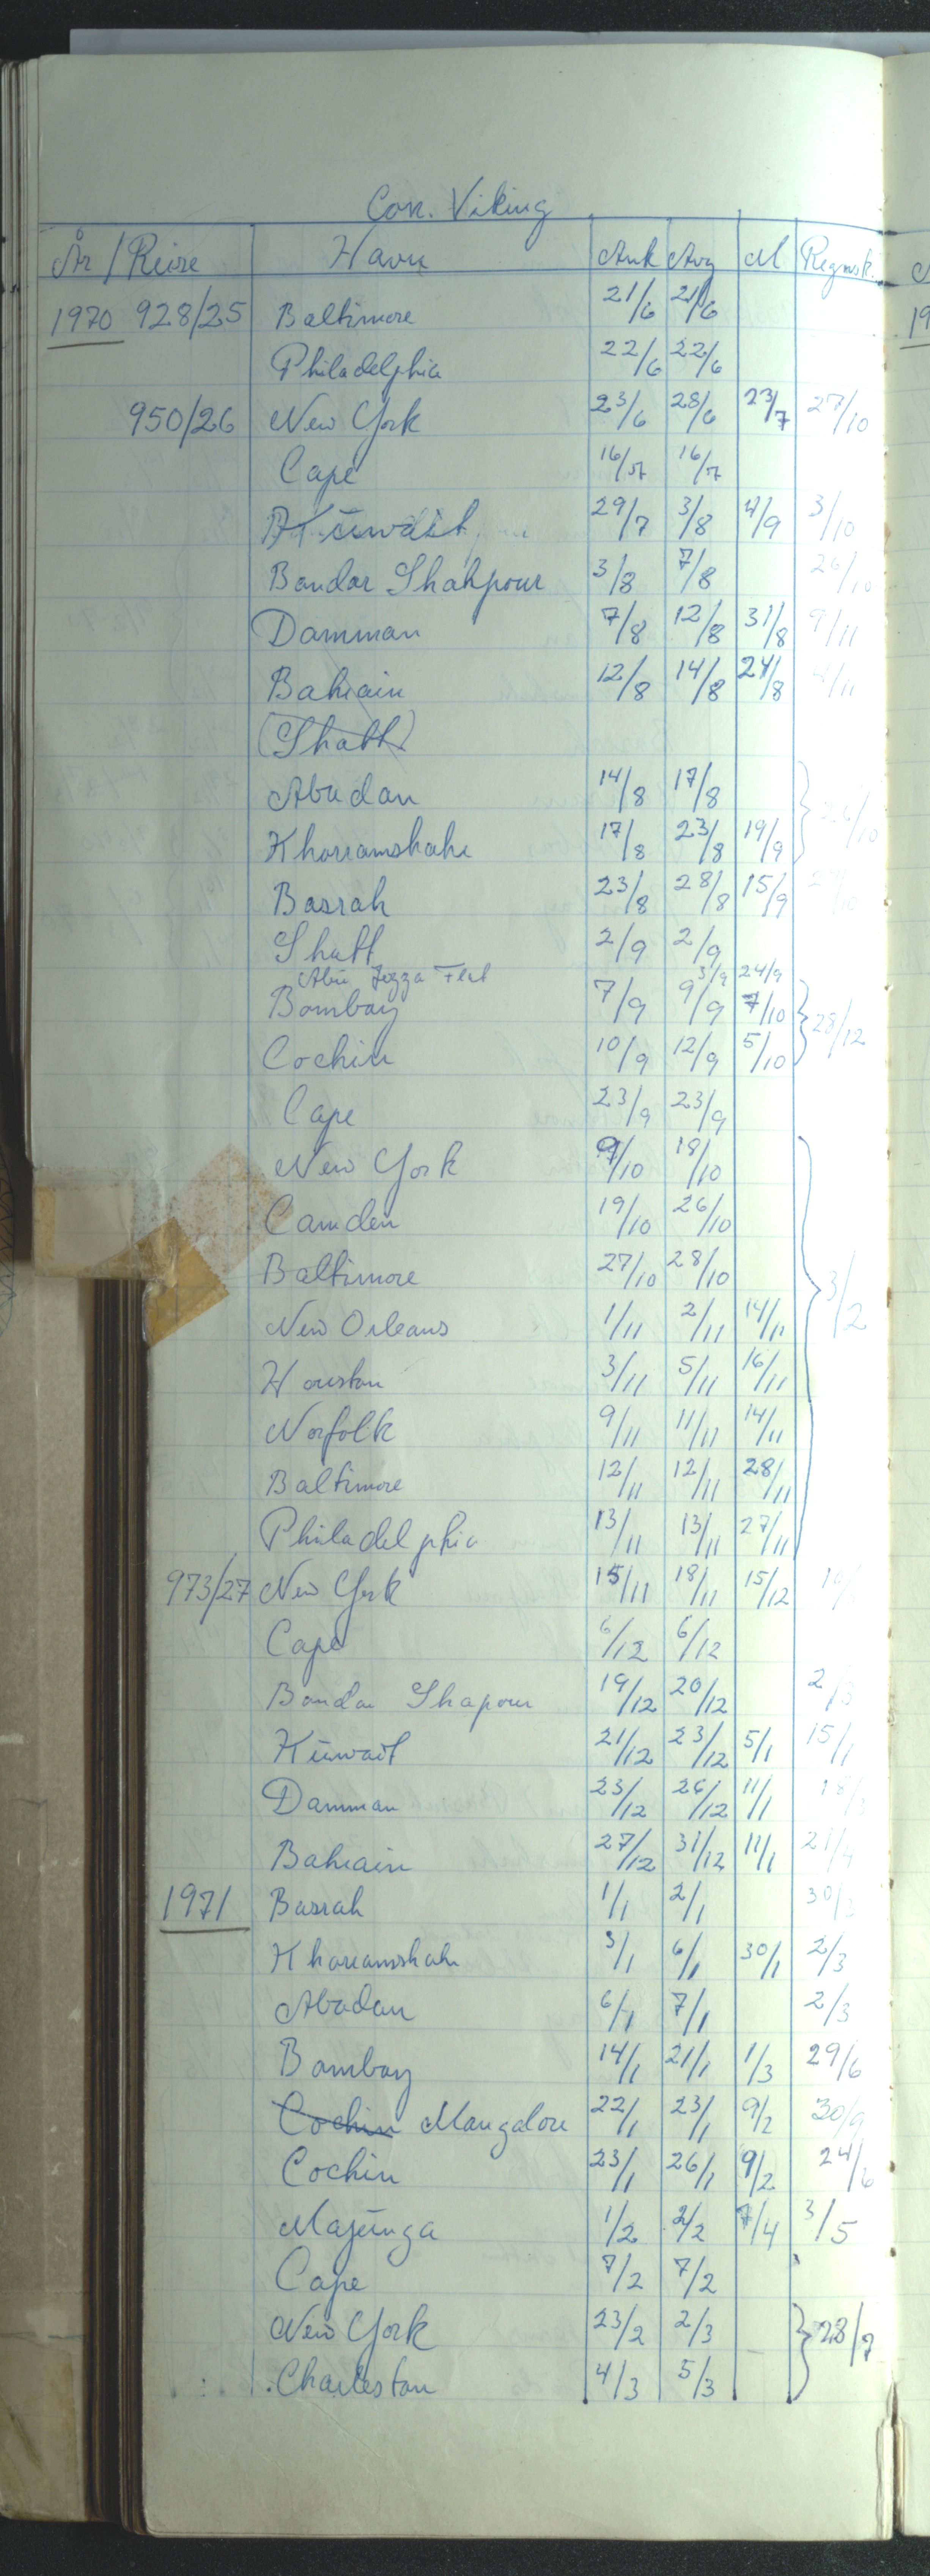 Con. Viking
År / Reise Havn Ank Avg M Regnsk.
1970 928/25 Baltimore 21/6 21/6
Philadelphia 22/6 22/6
950/26 New York 23/6 28/6 23/7 27/10
Cape 16/7 16/7
Kuwait 29/7 3/8 4/9 3/10
Bandar Shahpour 3/8 7/8 26/10
Damman 7/8 12/8 31/8 9/11
Bahrain 12/8 14/8 24/8
(Shatt)
Abadan 14/8 17/8
Khorramshahr 17/8 23/8 19/9
Basrah 23/8 28/8 15/9
Shatt 2/9 2/9
Abu Flat 3/9 24/9
Bombay 7/9 9/9 7/10
Cochin 10/9 12/9 5/10 28/12
Cape 23/9 23/9
New York 9/10 18/10
Camden 19/10 26/10
Baltimore 27/10 28/10
New Orleans 1/11 2/11 14/11 3/2
Houston 3/11 5/11 16/11
Norfolk 9/11 11/11 14/11
Baltimore 12/11 12/11 28/11
Philadelphia 13/11 13/11 27/11
973/27 New York 15/11 18/11 15/12
Cape 6/12 6/12
Bandar Shapour 19/12 20/12 2/3
Kuwait 21/12 23/12 5/1 15/1
Damman 23/12 26/12 11/1
Bahrain 27/12 31/12 11/1 21/4
1971 Basrah 1/1 2/1 30/3
Khorramshahr 3/1 6/1 30/1 2/3
Abadan 6/1 7/1 2/3
Bombay 14/1 21/1 1/3 29/6
Cochin Mangalore 22/1 23/1 9/2 30/9
Cochin 23/1 26/1 9/2 24/6
Majunga 1/2 2/2 7/4 3/5
Cape 7/2 7/2
New York 23/2 2/3 28/7
Charleston 4/3 5/3